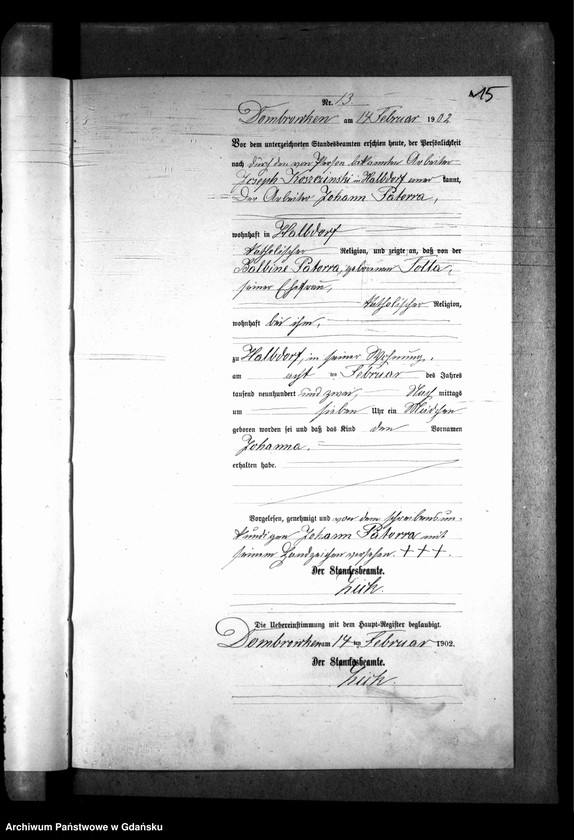 15
Nr. 13
Dombrowken am 14 Februar 1902
Vor dem unterzeichneten Standesbeamten erschien heute, der Persönlichkeit
nach durch den von Person bekannten Arbeiter
Joseph in Halbdorf kannt,
Der Arbeiter Johann Patorra,
wohnhaft in Halbdorf
katholischer Religion, und zeigte an, daß von der
Balbine Patorra, geborenen Totta,
seiner Ehefrau,
katholischer Religion,
wohnhaft bei ihm,
zu Halbdorf, in seiner Wohnung,
am acht ten Februar des Jahres
tausend neunhundert und zwei, Nach mittags
um sieben Uhr ein Mädchen
geboren worden sei und daß das Kind den Vornamen
Johanna.
erhalten habe.
Vorgelesen, genehmigt und von dem schreibensun-
kundigen Johann Patorra mit
seinem Handzeichen versehen. +++.
Der Standesbeamte.
Die Uebereinstimmung mit dem Haupt-Register beglaubigt.
Dombrowken am 14 ten Februar 1902.
Der Standesbeamte.
Archiwum Państwowe w Gdańsku